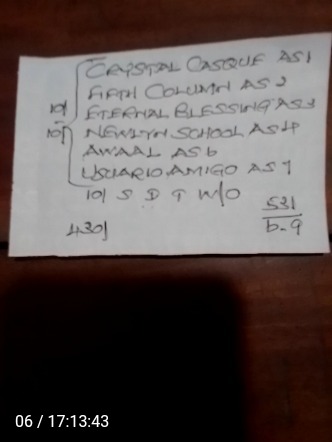 CRYSTAL CASQUE AS 1
FIFTH COLUMN AS 2
10/ ETERNAL BLESSING AS 3
10/ NEWLYN SCHOOL AS 4
AWAAL AS 6
USUARIO AMIGO AS 7
10/ S D T W/O
531
430/ 6-9
06 / 17:13:43